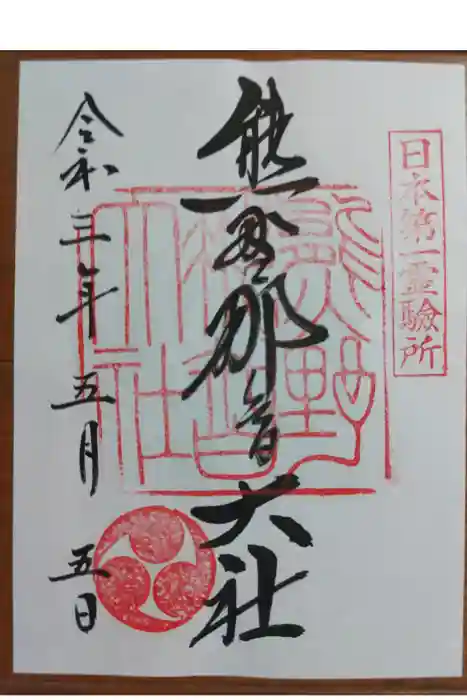 日本第一霊驗所
熊野那智大社
熊野
那智
大社
令和三年五月五日